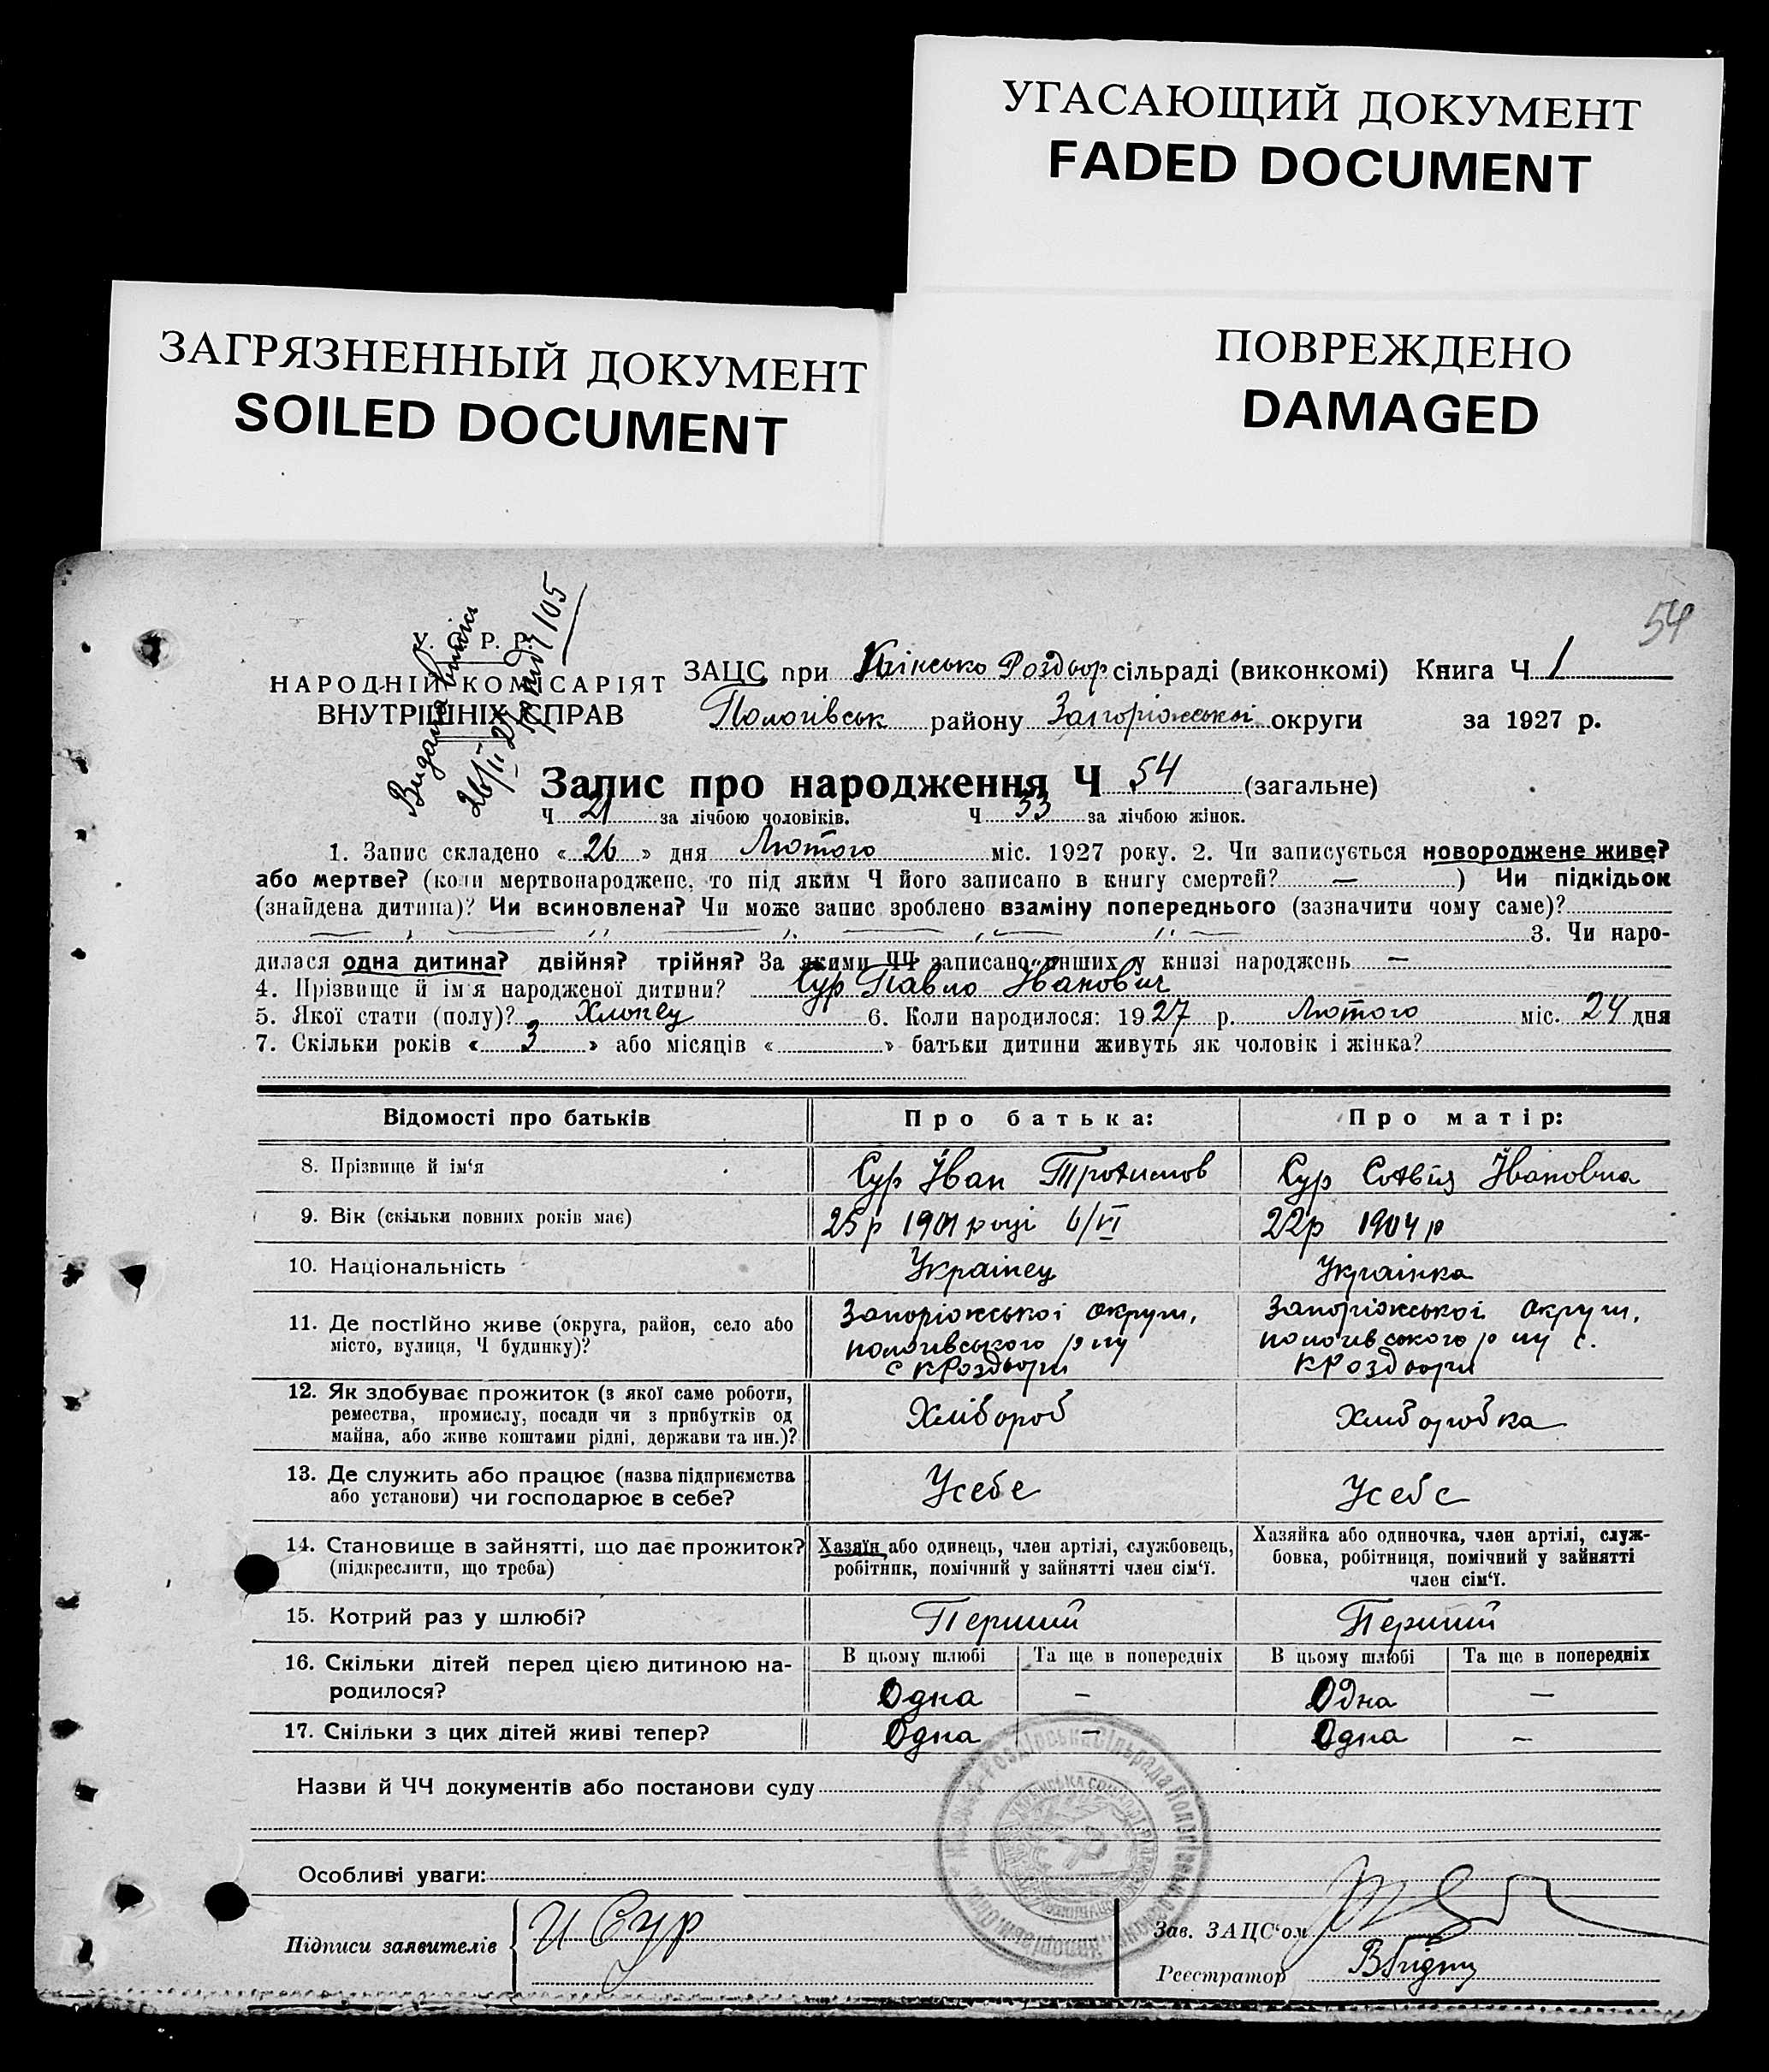 УГАСАЮЩИЙ ДОКУМЕНТ
FADED DOCUMENT
ЗАГРЯЗНЕННЫЙ ДОКУМЕНТ
SOILED DOCUMENT
ПОВРЕЖДЕНО
DAMAGED
54
У. С. Р. Р.
НАРОДНІЙ КОМІСАРІЯТ
ВНУТРІШНІХ СПРАВ
Видана
26/II 27 105
ЗАЦС при Кінсько Роздьор сільраді (виконкомі) Книга Ч 1
Пологівськ району Запоріжськоі округи за 1927 р.
Запис про народження Ч 54 (загальне)
Ч 21 за лічбою чоловіків. Ч 33 за лічбою жінок.
1. Запис складено « 26 » дня Лютого міс. 1927 року. 2. Чи записується новороджене живе?
або мертве? (коли мертвонароджене, то під яким Ч його записано в книгу смертей? — ) Чи підкідьок
(знайдена дитина)? Чи всиновлена? Чи може запис зроблено взаміну попереднього (зазначити чому саме)?
3. Чи наро-
дилася одна дитина? двійня? трійня? За якими ЧЧ записано инших у книзі народжень —
4. Прізвище й ім'я народженої дитини? Сур Павло Іванович
5. Якої стати (полу)? Хлопец 6. Коли народилося: 1927 р. Лютого міс. 24 дня
7. Скільки років « 3 » або місяців « » батьки дитини живуть як чоловік і жінка?
Відомості про батьків Про батька: Про матір:
8. Прізвище й ім'я Сур Іван Трохимов Сур Софія Івановна
9. Вік (скільки повних років має) 25 р 1901 році 6/VI 22р 1904 р
10. Національність Украінец Украінка
11. Де постійно живе (округа, район, село або місто, вулиця, Ч будинку)?
Запоріжськоі округи, пологивського р ну с КРоздори
Запоріжськоі округи, пологивського р ну с. КРоздори
12. Як здобуває прожиток (з якої саме роботи,
ремества, промислу, посади чи з прибутків од
майна, або живе коштами рідні, держави та ин.)?
Хлібороб Хліборобка
13. Де служить або працює (назва підприємства
або установи) чи господарює в себе?
Усебе Усебе
14. Становище в зайнятті, що дає прожиток?
(підкреслити, що треба)
Хазяїн або одинець, член артілі, службовець,
робітник, помічний у зайнятті член сім'ї.
Хазяйка або одиночка, член артілі, служ-
бовка, робітниця, помічний у зайнятті
член сім'ї.
15. Котрий раз у шлюбі? Перший Перший
16. Скільки дітей перед цією дитиною на-
родилося?
В цьому шлюбі Та ще в попередніх В цьому шлюбі Та ще в попередніх
Одна — Одна —
17. Скільки з цих дітей живі тепер? Одна — Одна —
Назви й ЧЧ документів або постанови суду
Особливі уваги:
Підписи заявителів И Сур
Зав. ЗАЦС'ом
Реєстратор